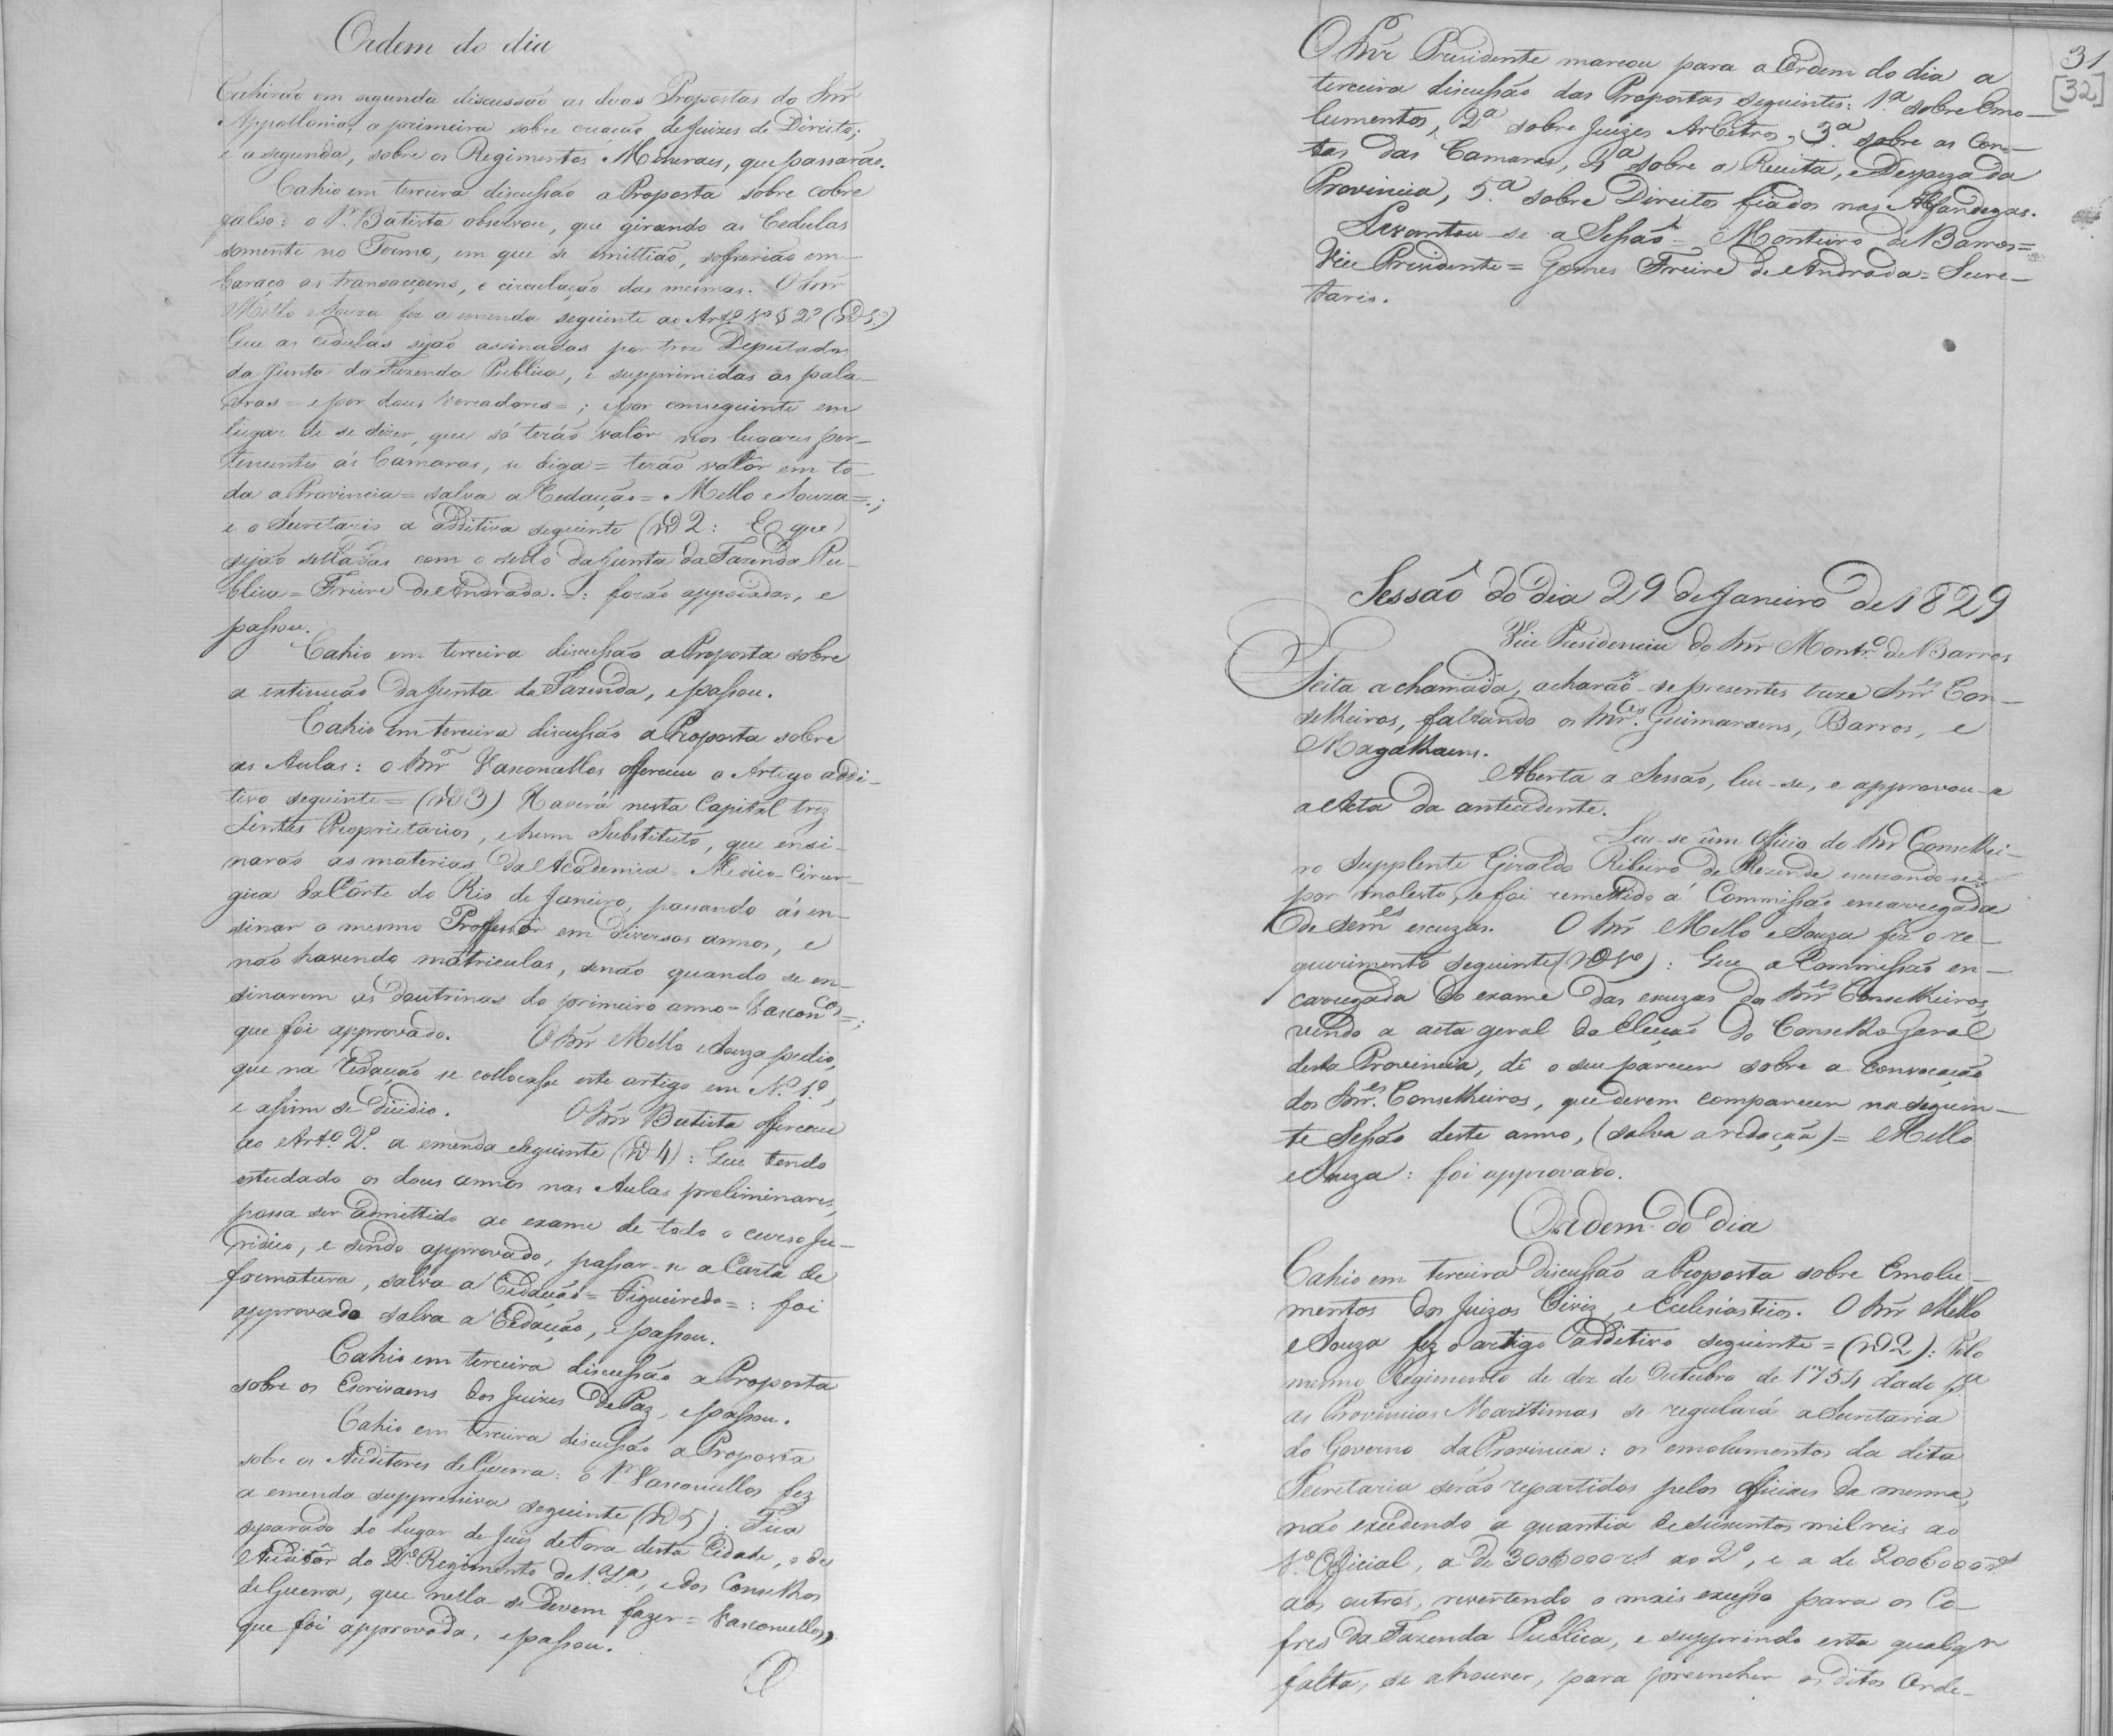 Ordem do dia
Cahirão em segunda discussão as duas Propostas do Snr
Appollonio, a primeira sobre creação de Juizes de Direito;
e a segunda, sobre os Regimentos Mineraes, que passarão.
Cahio em terceira discussão a Proposta sobre cobre
falso: o Sr. Batista observou, que girando as Cedulas
somente no Termo, em que se emittião, sofrerião em-
baraço as transacçoens, e circulação das mesmas. O Snr
Mello e Souza fez a emenda seguinte ao Artº 1º § 2º (Nº 1º)
Que as cedulas sejão assinadas por trez Deputados
da Junta da Fazenda Publica, e supprimidas as pala-
vras = e por dous Vereadores = ; e por conseguinte em
lugar de se dizer, que só terão valôr nos lugares per-
tencentes ás Camaras, se diga = terão valôr em to-
da a Provincia = salva a Redacção = Mello e Souza = ;
e o Secretario a additiva seguinte (Nº 2: E que
sejão selladas com o sello da Junta da Fazenda Pu-
blica = Freire de Andrada. = : forão appoiadas, e
passou.
Cahio em terceira discussão a Proposta sobre
a extincção da Junta da Fazenda, e passou.
Cahio em terceira discussão a Proposta sobre
as Aulas: o Snr Vasconcellos offereceu o Artigo addi-
tivo seguinte = (Nº 3) Haverá nesta Capital trez
Lentes Proprietarios, e hum Substituto, que ensi-
narão as materias da Academia = Medico-Cirur-
gica da Côrte do Rio de Janeiro, passando ás en-
sinar o mesmo Proffessor em diversos annos, e
não havendo matriculas, senão quando se en-
sinarem as doutrinas do primeiro anno = Vasconcos = ;
que foi approvado. O Snr Mello e Souza pedio,
que na Redacção se collocasse este artigo em Nº 1º,
e assim se dicidio. O Snr Batista offereceu
ao Artº 2º a emenda seguinte (Nº 4): Que tendo
estudado os dous annos nas Aulas preliminares,
possa ser admittido ao exame de todo o curso Ju-
ridico, e sendo approvado, passar-se a Carta de
formatura, salva a Redacção = Figueiredo = : foi
approvada salva a Redacção, e passou.
Cahio em terceira discussão a Proposta
sobre os Escrivaens dos Juizes de Paz, e passou.
Cahio em terceira discussão a Proposta
sobre os Auditores de Guerra: o Sr Vasconcellos fez
a emenda suppressiva seguinte (Nº 5): Fica
separado do lugar de Juiz de Fora desta Cidade, o de
Auditôr do 2º Regimento de 1.ª L.ª, e dos Conselhos
de Guerra, que nella se devem fazer = Vasconcellos,
que foi approvada, e passou.
O
31
[32]
O Snr Presidente marcou para a Ordem do dia a
terceira discussão das Propostas seguintes: 1.ª sobre Emo-
lumentos, 2ª sobre Juizes Arbitros, 3.ª sobre as Con-
tas das Camaras, 4ª sobre a Receita, e Despeza da
Provincia, 5.ª sobre Direitos fiados nas Alfandegas.
Levantou-se a Sessão = Monteiro de Barros =
Vice Presidente = Gomes Freire de Andrada = Secre-
tario.
Sessão do dia 29 de Janeiro de 1829
Vice Presidencia do Snr Montrº de Barros
Feita a chamada, acharão-se presentes treze Snres Con-
selheiros, faltando os Snres. Guimaraens, Barros, e
Magalhaens.
Aberta a Sessão, leu-se, e approvou-se
a Acta da antecedente.
Leu-se um Officio do Snr Conselhei-
ro Supplente Giraldo Ribeiro de Rezende escuzando-se
por molesto, e foi remettido á Commissão encarregada
de semes escuzas. O Snr Mello e Souza fez o re-
querimento seguinte (Nº 1º): Que a Commissão en-
carregada do exame das escuzas dos Snres Conselheiros,
vendo a acta geral da Eleição do Conselho Geral
desta Provincia, dê o seu parecer sobre a convocação
dos Snres. Conselheiros, que devem comparecer na seguin-
te Sessão deste anno, (salva a redacção) = Mello
e Souza: foi approvado.
Ordem do dia
Cahio em terceira discussão a Proposta sobre Emolu-
mentos dos Juizos Civiz, e Ecclesiasticos. O Snr Mello
e Souza fez o artigo additivo seguinte = (Nº 2): Pelo
mesmo Regimento de dez de Outubro de 1754 dado pª
as Provincias Maritimas se regulará a Secretaria
do Governo da Provincia: os emolumentos da dita
Secretaria serão repartidos pelos officiaes da mesma,
não excedendo a quantia de seiscentos mil reis ao
1º Official, a de 300$000rs ao 2º, e a de 200$000rs
aos outros, revertendo o mais excesso para os Co-
fres da Fazenda Publica, e supprindo esta qualqr
falta, se a houver, para preencher os ditos Orde-